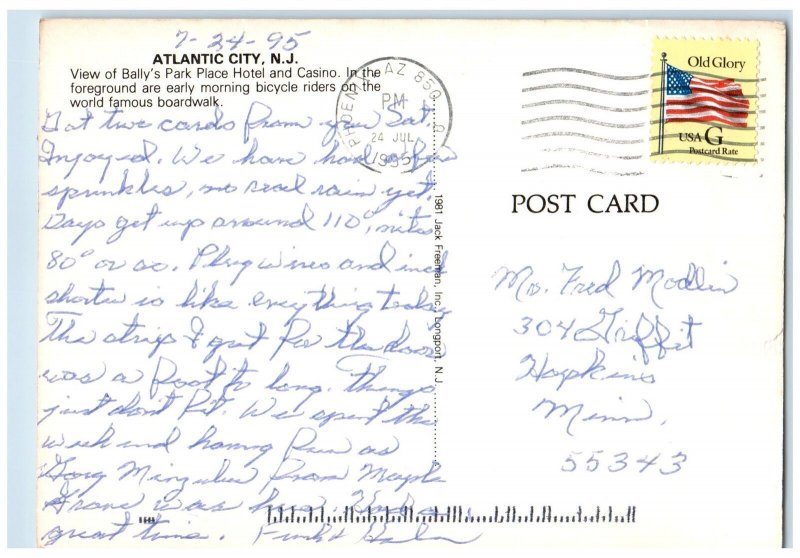 7-24-95
ATLANTIC CITY, N.J.
View of Bally's Park Place Hotel and Casino. In the
foreground are early morning bicycle riders on the
world famous boardwalk.
Got two cards from you Sat.
Injoyed. We have had a few
sprinkles, no real rain yet.
Days get up around 110°, nites
80° or so. Plug wires and
shorter is like everything today
The strip I got for the door
was a foot to long. things
just don't fit. We spent the
week end having fun as
Gary from Maple
Grove was here. Had a
great time.
PHOENIX, AZ 850
PM
24 JUL
1995
1981 Jack Freeman, Inc., Longport, N.J.
Old Glory
USA G
Postcard Rate
POST CARD
Mr. Fred Modlin
304 Griffit
Hopkins
Minn.
55343